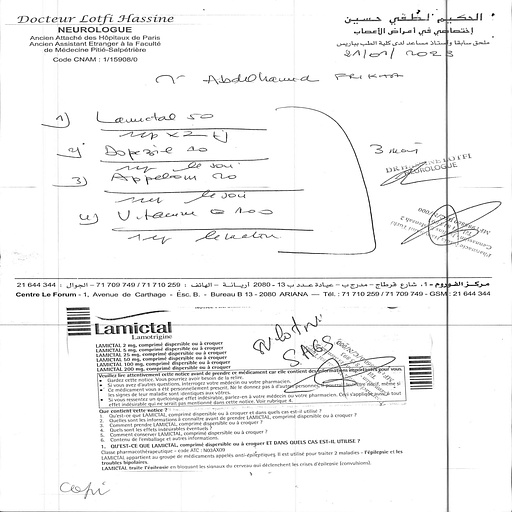 Docteur Lotfi Hassine
NEUROLOGUE
Ancien Attaché des Hôpitaux de Paris
Ancien Assistant Etranger à la Faculté
de Médecine Pitié-Salpétrière
Code CNAM : 1/15908/0
الحكيم لطفي حسين
إختصاصي في أمراض الأعصاب
ملحق سابقا وأستاذ مساعد لدى كلية الطب بباريس
21/01/2023
Abdelhamid
1) Lamictal 50
1cp x 2 /j
2) Dopezil 10
1cp le soir
3) 20
1cp le soir
4) Vitamine 100
1cp le matin
3 mois
DR HASSINE LOTFI
NEUROLOGUE
مركز الفوروم - 1، شارع قرطاج - مدرج ب - عيادة عدد ب 13 - 2080 أريانة - الهاتف : 71 710 259 / 71 709 749 - الجوال : 21 644 344
Centre Le Forum - 1, Avenue de Carthage - Esc. B. - Bureau B 13 - 2080 ARIANA — Tél. : 71 710 259 / 71 709 749 - GSM : 21 644 344
Lamictal
Lamotrigine
LAMICTAL 2 mg, comprimé dispersible ou à croquer
LAMICTAL 5 mg, comprimé dispersible ou à croquer
LAMICTAL 25 mg, comprimé dispersible ou à croquer
LAMICTAL 50 mg, comprimé dispersible ou à croquer
LAMICTAL 100 mg, comprimé dispersible ou à croquer
LAMICTAL 200 mg, comprimé dispersible ou à croquer
Veuillez lire attentivement cette notice avant de prendre ce médicament car elle contient des informations importantes pour vous.
• Gardez cette notice. Vous pourriez avoir besoin de la relire.
• Si vous avez d'autres questions, interrogez votre médecin ou votre pharmacien.
• Ce médicament vous a été personnellement prescrit. Ne le donnez pas à d'autres personnes. Il pourrait leur être nocif, même si
les signes de leur maladie sont identiques aux vôtres.
• Si vous ressentez un quelconque effet indésirable, parlez-en à votre médecin ou votre pharmacien. Ceci s'applique aussi à tout
effet indésirable qui ne serait pas mentionné dans cette notice. Voir rubrique 4.
Que contient cette notice ?
1. Qu'est-ce que LAMICTAL, comprimé dispersible ou à croquer et dans quels cas est-il utilisé ?
2. Quelles sont les informations à connaître avant de prendre LAMICTAL, comprimé dispersible ou à croquer ?
3. Comment prendre LAMICTAL, comprimé dispersible ou à croquer ?
4. Quels sont les effets indésirables éventuels ?
5. Comment conserver LAMICTAL, comprimé dispersible ou à croquer ?
6. Contenu de l'emballage et autres informations.
1. QU'EST-CE QUE LAMICTAL, comprimé dispersible ou à croquer ET DANS QUELS CAS EST-IL UTILISÉ ?
Classe pharmacothérapeutique - code ATC : N03AX09
LAMICTAL appartient au groupe de médicaments appelés anti-épileptiques. Il est utilisé pour traiter 2 maladies - l'épilepsie et les
troubles bipolaires.
LAMICTAL traite l'épilepsie en bloquant les signaux du cerveau qui déclenchent les crises d'épilepsie (convulsions).